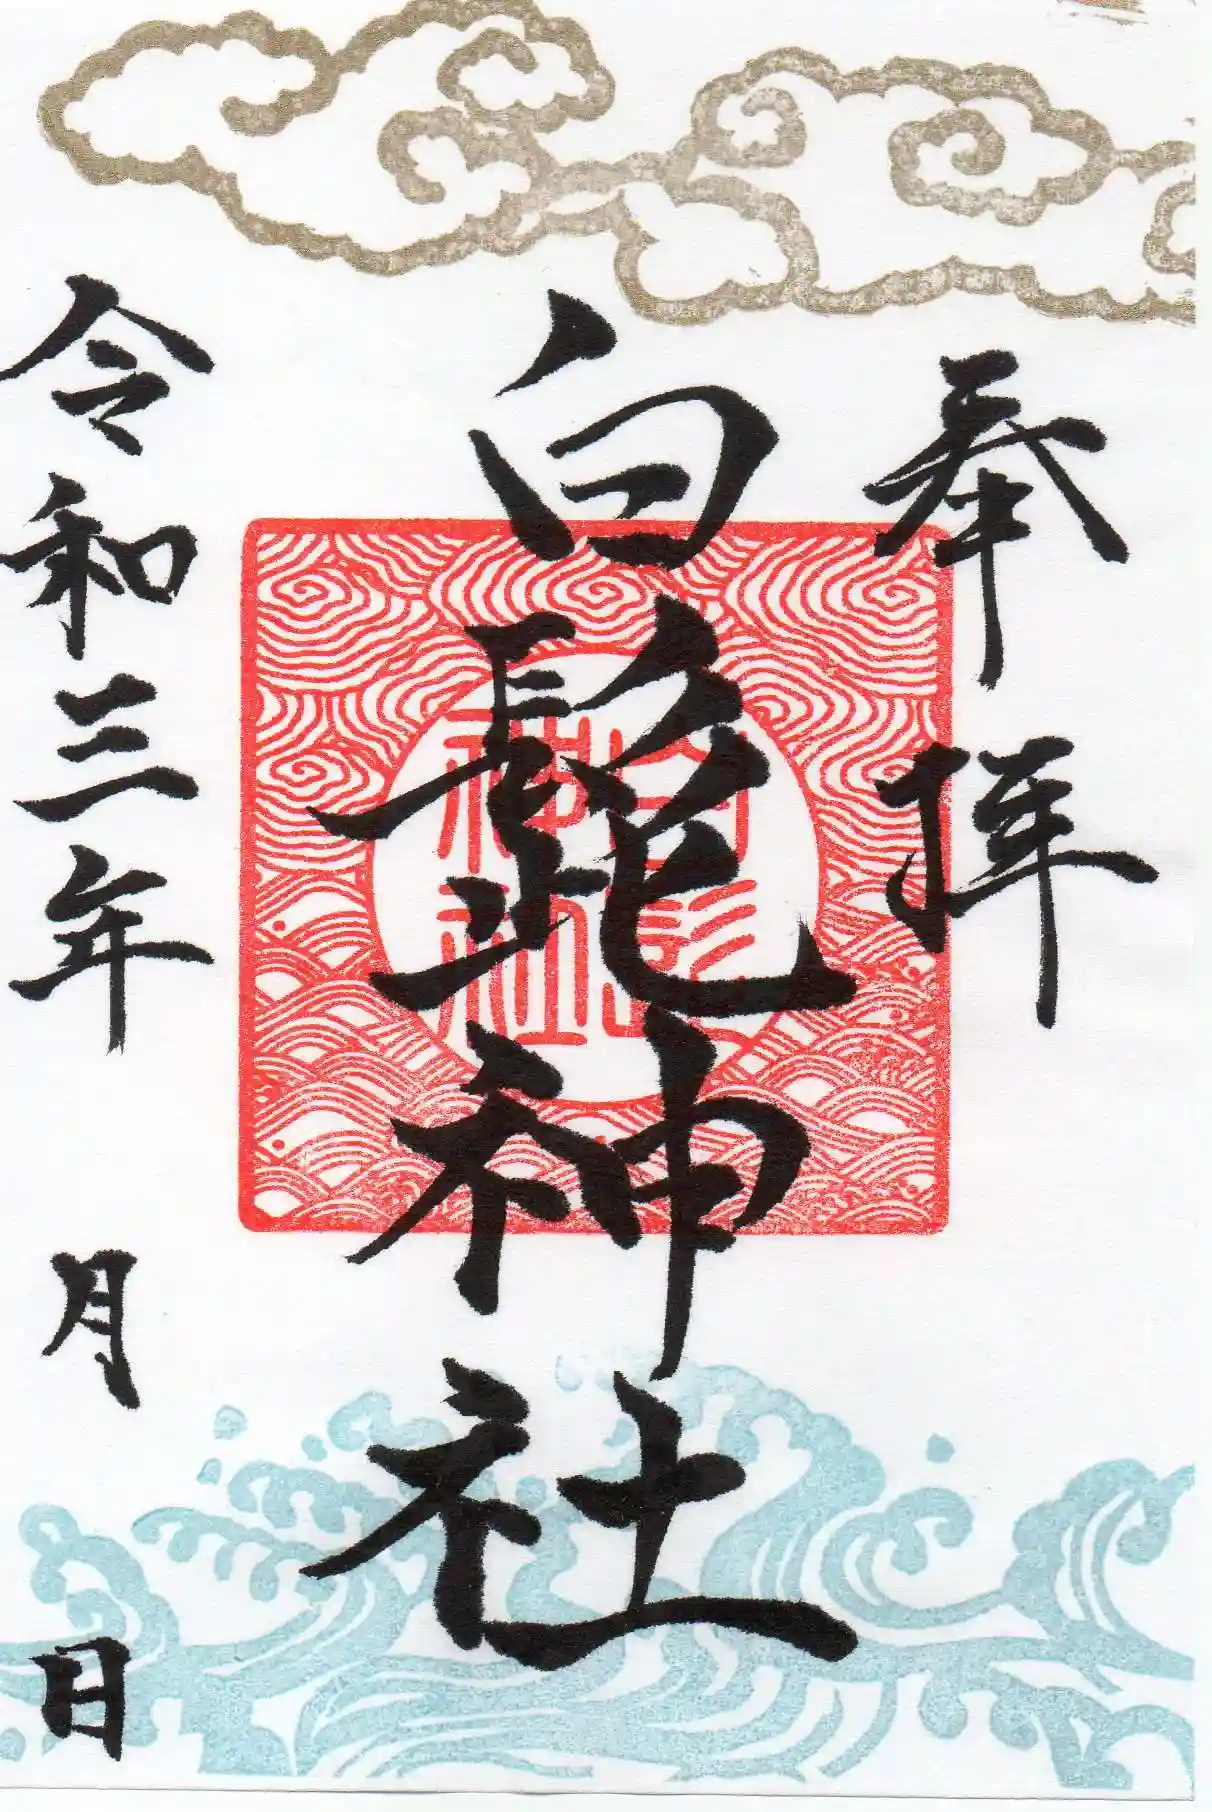 奉拝
白髭神社
令和三年 月 日